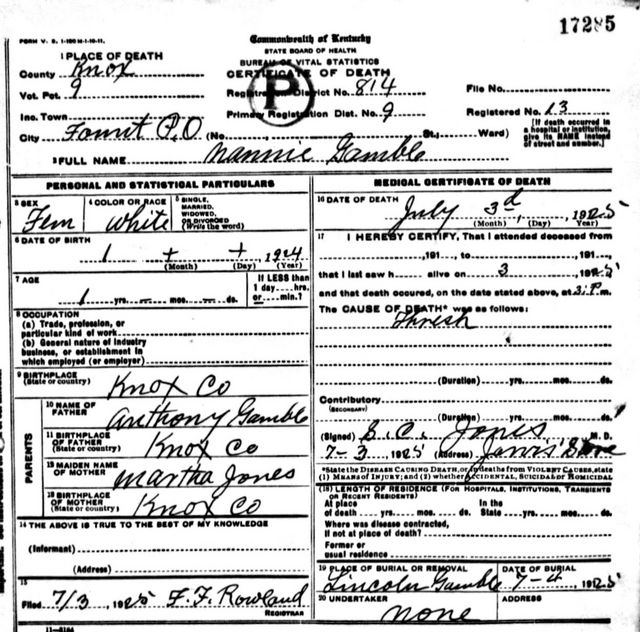 17285
FORM V. S. 1-100 M-1-10-11.
Commonwealth of Kentucky
STATE BOARD OF HEALTH
BUREAU OF VITAL STATISTICS
CERTIFICATE OF DEATH
P
1 PLACE OF DEATH
County Knox
Vot. Pct. 9
Registration District No. 814
File No.
Inc. Town
Primary Registration Dist. No. 9
Registered No. 13
City Fount P.O (No. St.; Ward)
[If death occurred in a hospital or institution, give its NAME instead of street and number.]
2 FULL NAME Nannie Gamble
PERSONAL AND STATISTICAL PARTICULARS
3 SEX Fem
4 COLOR OR RACE White
5 SINGLE, MARRIED, WIDOWED, OR DIVORCED (Write the word)
6 DATE OF BIRTH
1 + + 1924
(Month) (Day) (Year)
7 AGE
1 yrs. mos. ds.
If LESS than 1 day....hrs. or....min.?
8 OCCUPATION
(a) Trade, profession, or particular kind of work
(b) General nature of industry business, or establishment in which employed (or employer)
9 BIRTHPLACE (State or country) Knox Co
PARENTS
10 NAME OF FATHER Anthony Gamble
11 BIRTHPLACE OF FATHER (State or country) Knox Co
12 MAIDEN NAME OF MOTHER Martha Jones
13 BIRTHPLACE OF MOTHER (State or country) Knox Co
14 THE ABOVE IS TRUE TO THE BEST OF MY KNOWLEDGE
(Informant)
(Address)
15
Filed 7/3 1925 F. F. Rowland
REGISTRAR
11-8164
MEDICAL CERTIFICATE OF DEATH
16 DATE OF DEATH
July 3d, 1925
(Month) (Day) (Year)
17 I HEREBY CERTIFY, That I attended deceased from
,191 , to ,191 ,
that I last saw h alive on 3 1925
and that death occurred, on the date stated above, at 3 P.m.
The CAUSE OF DEATH* was as follows:
Thresh
(Duration) yrs. mos. ds.
Contributory
(SECONDARY)
(Duration) yrs. mos. ds.
(Signed) S. C. Jones M. D.
7-3 1925 (Address) Jarvis Store
*State the DISEASE CAUSING DEATH, or, in deaths from VIOLENT CAUSES, state (1) MEANS OF INJURY; and (2) whether ACCIDENTAL, SUICIDAL or HOMICIDAL
(18) LENGTH OF RESIDENCE (FOR HOSPITALS, INSTITUTIONS, TRANSIENTS OR RECENT RESIDENTS)
At place of death yrs. mos. ds.
In the State yrs. mos. ds.
Where was disease contracted, if not at place of death?
Former or usual residence
19 PLACE OF BURIAL OR REMOVAL
Lincoln Gamble
DATE OF BURIAL
7-4 1925
20 UNDERTAKER
none
ADDRESS